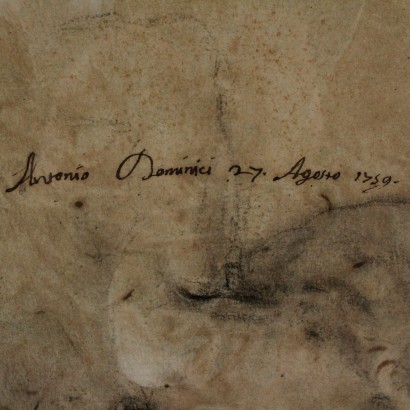 Antonio Dominici 27. Agosto 1759.